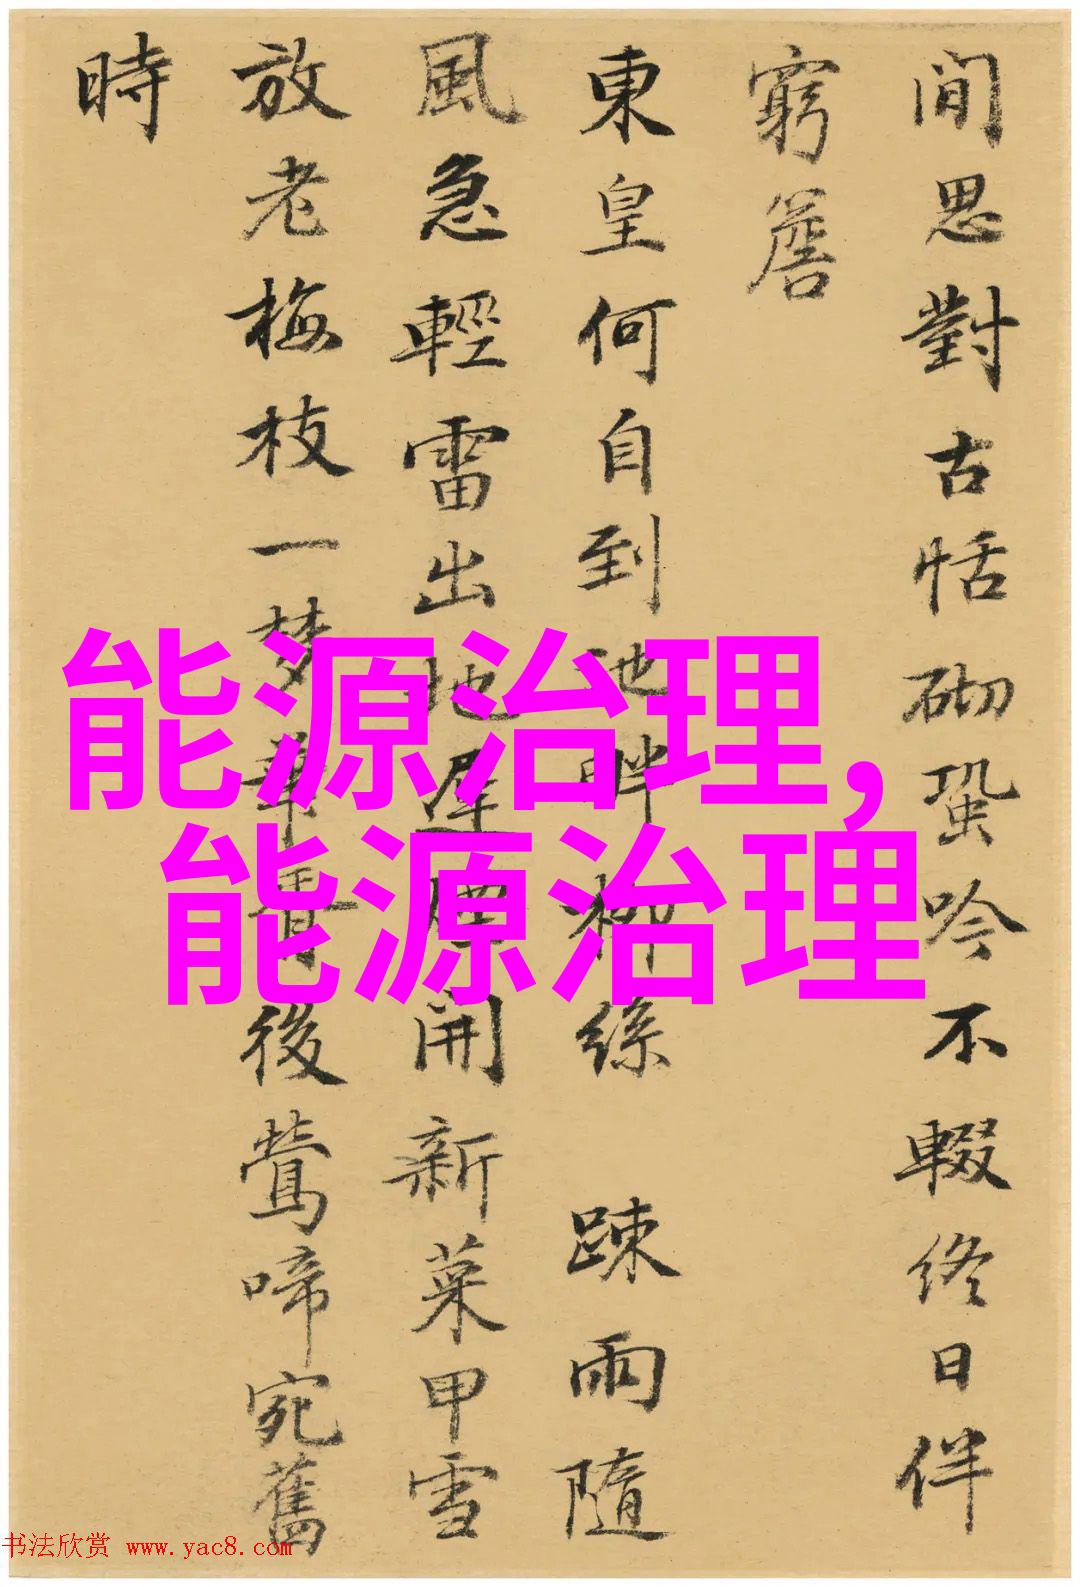 閒思對古恬砌蛩吟不輟終日伴
窮簷
東皇何自到池畔柳絲 踈雨隨
風急輕雷出地遲開新菜甲雪
放老梅枝一梦華胥後鶯啼宛舊
時
能源治理，
能源治理
书法欣赏 www.yac8.com